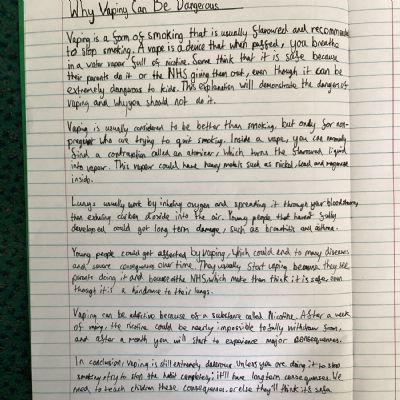 Why Vaping Can Be Dangerous
Vaping is a form of smoking that is usually flavoured and recommended
to stop smoking. A vape is a device that when puffed, you breathe
in a water vapour full of nicotine. Some think that it is safe because
their parents do it or the NHS giving them out, even though it can be
extremely dangerous to kids. This explanation will demonstrate the dangers of
vaping and why you should not do it.
Vaping is usually considered to be better than smoking, but only for non-
pregnant who are trying to quit smoking. Inside a vape, you can normally
find a contraption called an atomiser, which turns the flavoured liquid
into vapour. This vapour could have heavy metals such as nickel, lead and
inside.
Lungs usually work by inhaling oxygen and spreading it through your bloodstream,
then exhaling carbon dioxide into the air. Young people that haven't fully
developed could get long term damage, such as bronchitis and asthma.
Young people could get affected by vaping, which could lead to many diseases
and severe consequences over time. They usually start vaping because they see
parents doing it and because the NHS, which make them think it is safe, even
though it is a hindrance to their lungs.
Vaping can be addictive because of a substance called Nicotine. After a week
of using, the nicotine could be nearly impossible to fully withdraw from,
and after a month you will start to experience major consequences.
In conclusion, vaping is still extremely dangerous unless you are doing it to stop
smoking. try to stop the habit completely; it'll have longterm consequences. We
need to teach children these consequences, or else they'll think it's safe.